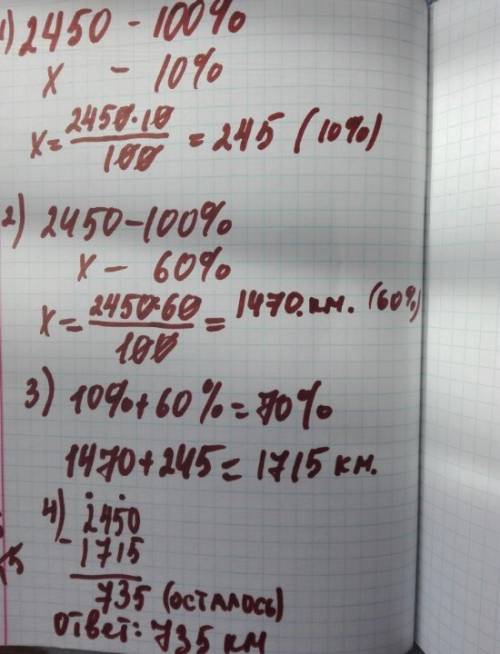 1) 2450 - 100%
x - 10%
x = 2450·10 / 100 = 245 (10%)
2) 2450 - 100%
x - 60%
x = 2450·60 / 100 = 1470.км. (60%)
3) 10% + 60% = 70%
1470 + 245 = 1715 км.
4) 2450
- 1715
735 (осталось)
ответ: 735 км